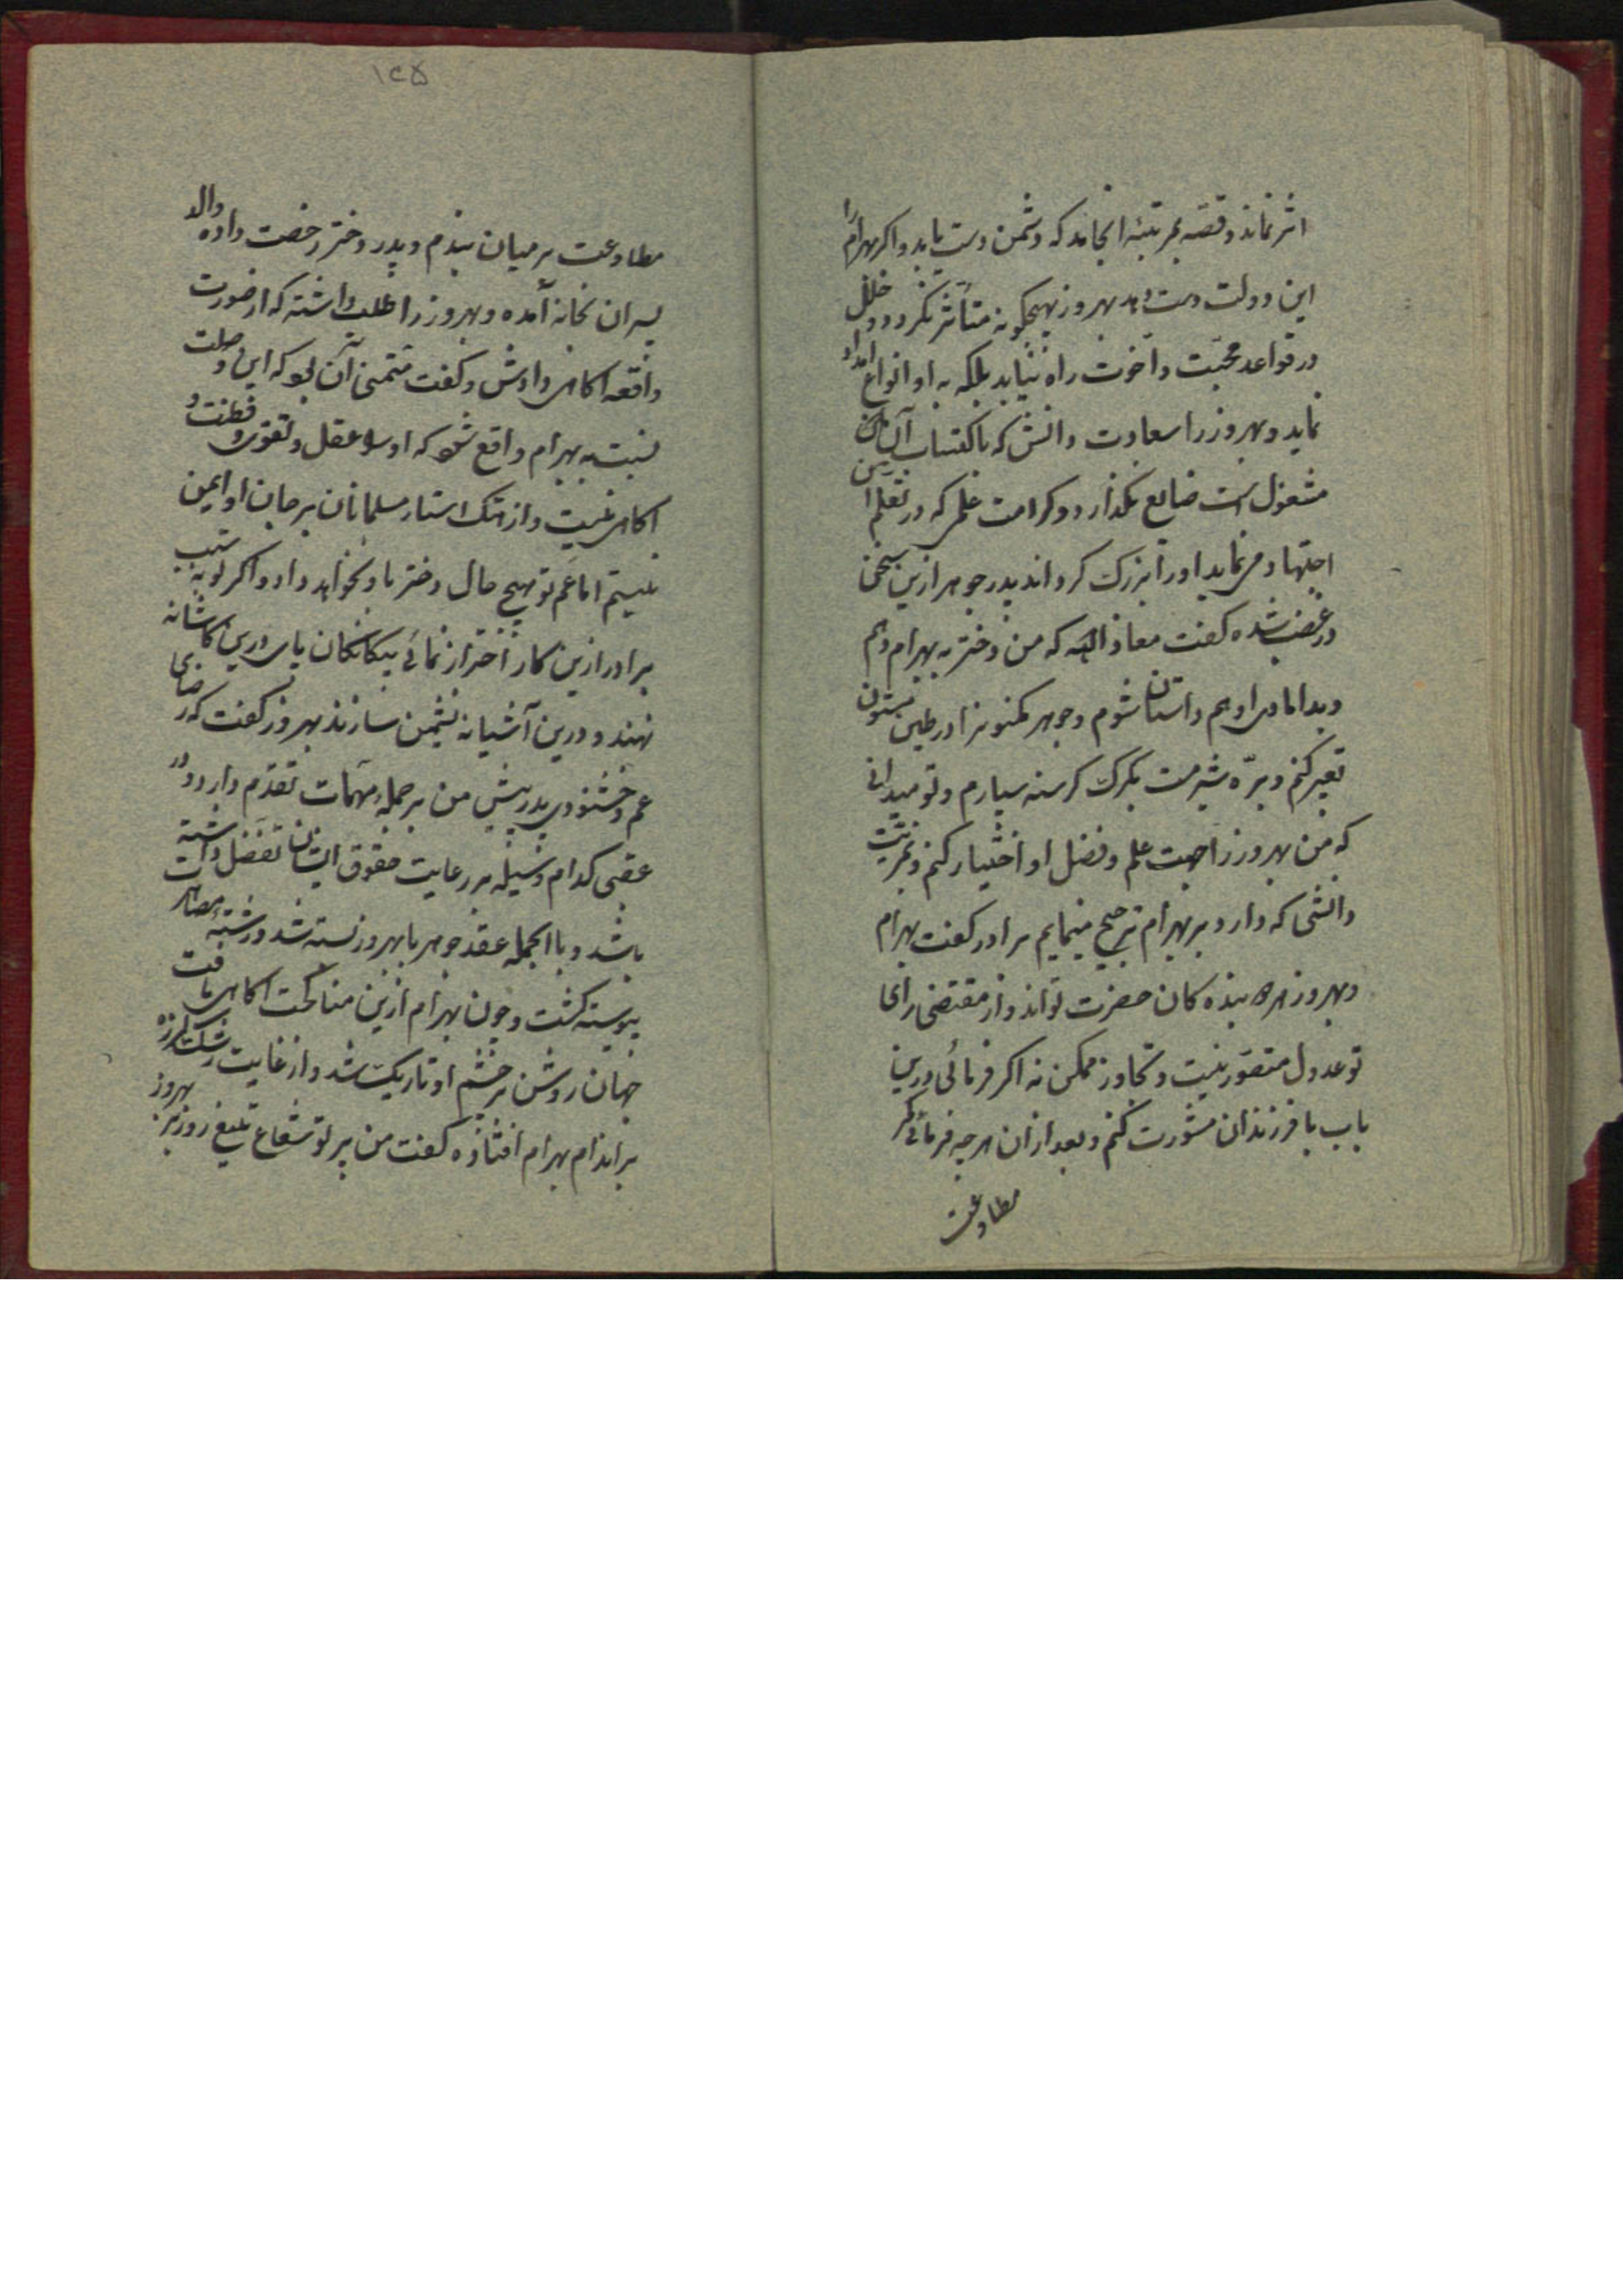 اثر نماند و قصه بمرتبهٔ انجامد که دشمن دست یابد و اگر بهرام را
این دولت دست دهد بهروز بهیچگونه متأثر نگردد و خلل
در قواعد محبّت و اخوت راه نیابد بلکه به او انواع امداد
نماید و بهروز را سعادت دانش که باکتساب آن
مشغول است ضایع نگذارد و کرامت علمی که در تعلم
اجتهاد می نماید او را بزرگ گرداند پدر جوهر ازین سخن
در غضب شده گفت معاذ الله که من دختر به بهرام دهم
و بدامادی او هم داستان شوم و جوهر مکنون را در طین
تعبیر کنم و برّه شیر مست بگرگ گرسنه سپارم و تو میدانی
که من بهروز را جهت علم و فضل او اختیار کنم و بمزیت
دانشی که دارد بر بهرام ترجیح مینمایم برادر گفت بهرام
و بهروز هر دو بنده کان حضرت تواند و از مقتضی رای
تو عدول متصوّر نیست و تجاوز ممکن نه اگر فرمائی درین
باب با فرزندان مشورت کنم و بعد از ان هر چه فرمائی کمر
مطاوعت
۱۲۵
مطاوعت بر میان بندم و پدر دختر رخصت داده والد
پسران بخانه آمده و بهروز را طلب داشته که از صورت
واقعه اکاهی دادش و گفت متمنی آن بود که این وصلت
نسبت به بهرام واقع شود که او را عقل و تقوی و فطنت و
اکاهی نیست و از هتک استار مسلمانان بر جان او ایمن
نیستم اما عم تو بهیچ حال دختر باو نخواهد داد و اگر تو به سبب
برادر ازین کار احتراز نمائی بیکانکان پای درین کاشانه
نهند و درین آشیانه نشیمن سازند بهروز گفت که رضای
عم و خشنودی پدر پیش من بر جمله مهمات تقدّم دارد و در
عقبی کدام وسیله بر رعایت حقوق ایشان تفضل داشته
باشد و بالجمله عقد جوهر با بهروز بسته شد و رشته مصاهرت
پیوسته گشت و چون بهرام ازین مناکحت اکاهی یافت
جهان روشن بر چشم او تاریک شد و از غایت رشک لرزه
بر اندام بهرام افتاده گفت من پرتو شعاع تیغ روز بر بهروز